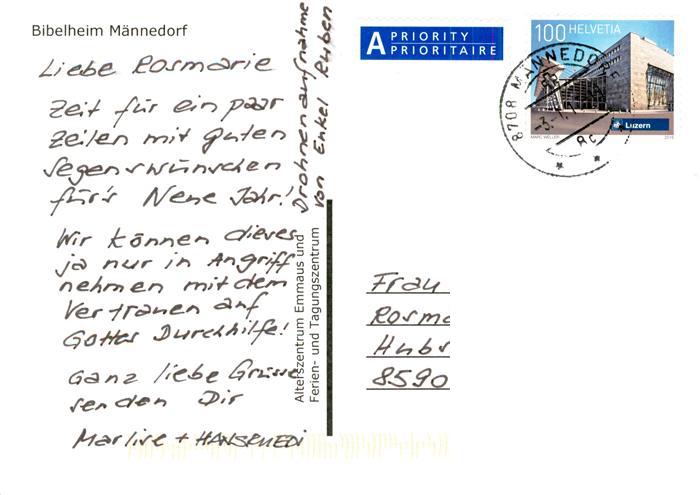 Bibelheim Männedorf
Liebe Rosmarie
Zeit für ein paar
Zeilen mit guten
Segenswünschen
für's Neue Jahr!
Wir können dieses
ja nur in Angriff
nehmen mit dem
Vertrauen auf
Gottes Durchhilfe!
Ganz liebe Grüsse
senden Dir
Marlise + HANSRUEDI
Drohnenaufnahme
von Enkel Ruben
Alterszentrum Emmaus und
Ferien- und Tagungszentrum
A PRIORITY
PRIORITAIRE
100 HELVETIA
Luzern
MARC WELLER
8708 MÄNNEDORF
Frau
Rosma
Hubs
8590